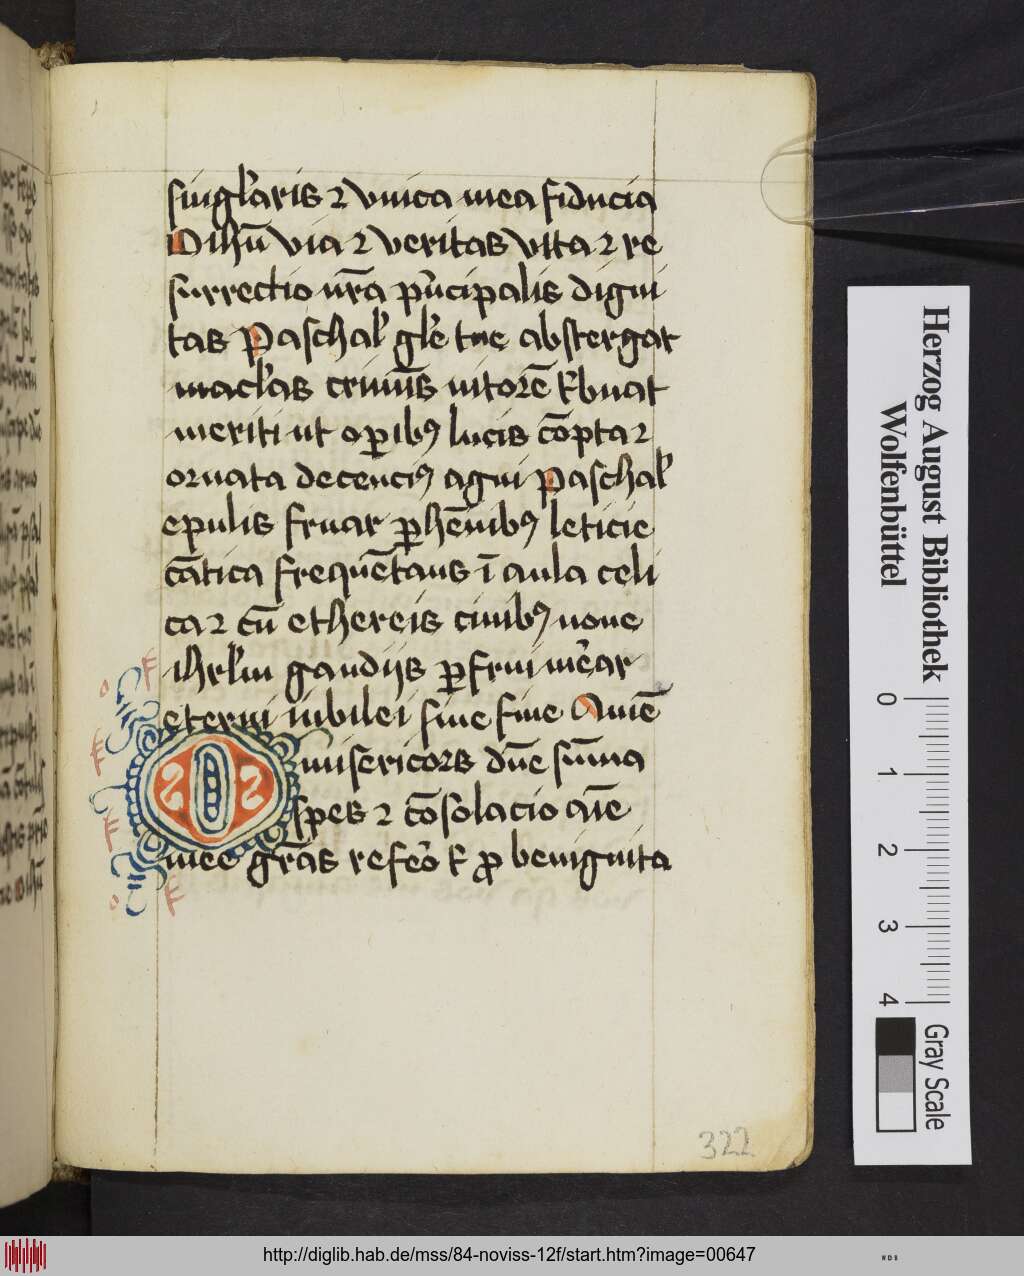 singl'aris ꝛ vnica mea fiducia
O ihū via ꝛ veritas vita ꝛ re
surrectio nr̄a p'ncipalis digni
tas Paschal' gl'e tue abstergat
macl'as crimīs nitorē t'buat
meriti ut oꝑibꝰ lucis cōpta ꝛ
ornata decenciꝰ agni Paschal'
epulis fruar ꝑhēnibꝰ leticie
cātica frequētans ī aula celi
ca ꝛ cū ethereis ciuibꝰ noue
ihrl'm gaudijs ꝑfrui mēar
eterni iubilei sine fine Amē
O misericors dn̄e sūma
spes ꝛ cōsolacio aīe
mee gr̄as refero t' ꝓ benignita
322
Herzog August Bibliothek
Wolfenbüttel
0 1 2 3 4
Gray Scale
http://diglib.hab.de/mss/84-noviss-12f/start.htm?image=00647